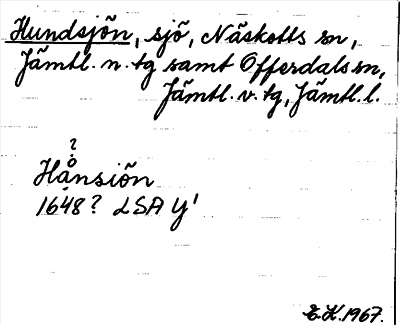 Hundsjön, sjö, Näskotts sn,
Jämtl. n. tg samt Offerdals sn,
Jämtl. v. tg, Jämtl. l.
?
Hånsiön
1648? LSA Y'
E.K. 1967.